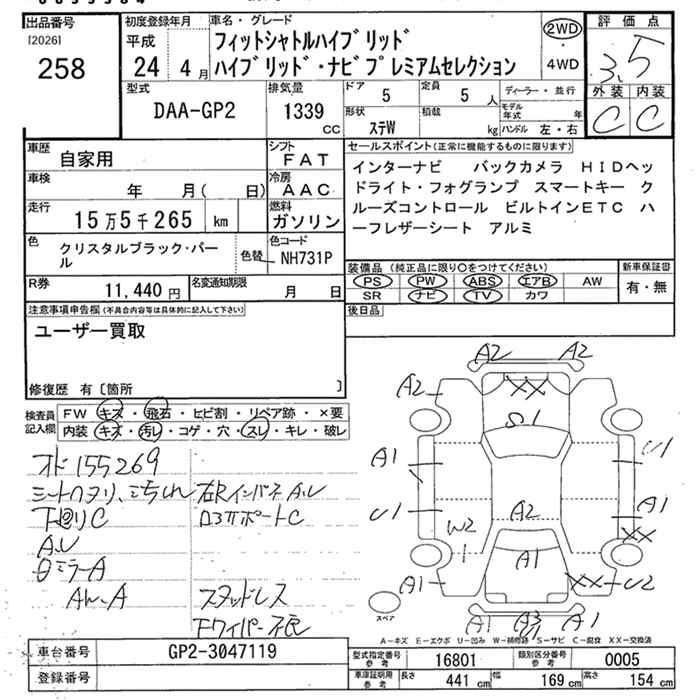 出品番号
[2026]
258
初度登録年月
平成
24年 4月
車名・グレード
フィットシャトルハイブリッド
ハイブリッド・ナビプレミアムセレクション
2WD
・
4WD
評価点
3.5
外装 内装
C C
型式
DAA-GP2
排気量
1339
CC
ドア
5
定員
5 人
形状
ステW
積載
kg
ディーラー・並行
モデル年式 年
ハンドル 左・右
車歴
自家用
シフト
FAT
車検
年 月(日)
冷房
AAC
走行
15万5千265 km
燃料
ガソリン
色
クリスタルブラック・パール
色替
色コード
NH731P
R券
11,440 円
名変通知期限
月 日
セールスポイント(正常に機能するものに限ります)
インターナビ バックカメラ HIDヘッ
ドライト・フォグランプ スマートキー ク
ルーズコントロール ビルトインETC ハ
ーフレザーシート アルミ
装備品 (純正品に限り○をつけてください)
PS PW ABS エアB AW
SR ナビ TV カワ
新車保証書
有・無
後日品
注意事項申告欄(不具合内容等は具体的に記入して下さい)
ユーザー買取
修復歴 有〔箇所 〕
検査員
記入欄
FW キズ・飛石・ヒビ割・リペア跡・×要
内装 キズ・汚レ・コゲ・穴・スレ・キレ・破レ
オド155269
下廻りC
A.U
ミラーA
スタッドレス
A2 A2
A2
XX
S1
A1
U1
U1
A1
XX
A2
W2
1
A1
A1
XX U2
A1 A3 A1
スペア
A-キズ E-エクボ U-凹み W-補修跡 S-サビ C-腐食 XX-交換済
車台番号
GP2-3047119
登録番号
型式指定番号
参考
16801
類別区分番号
参考
0005
車庫証明用
参考
長さ 441 cm 幅 169 cm 高さ 154 cm